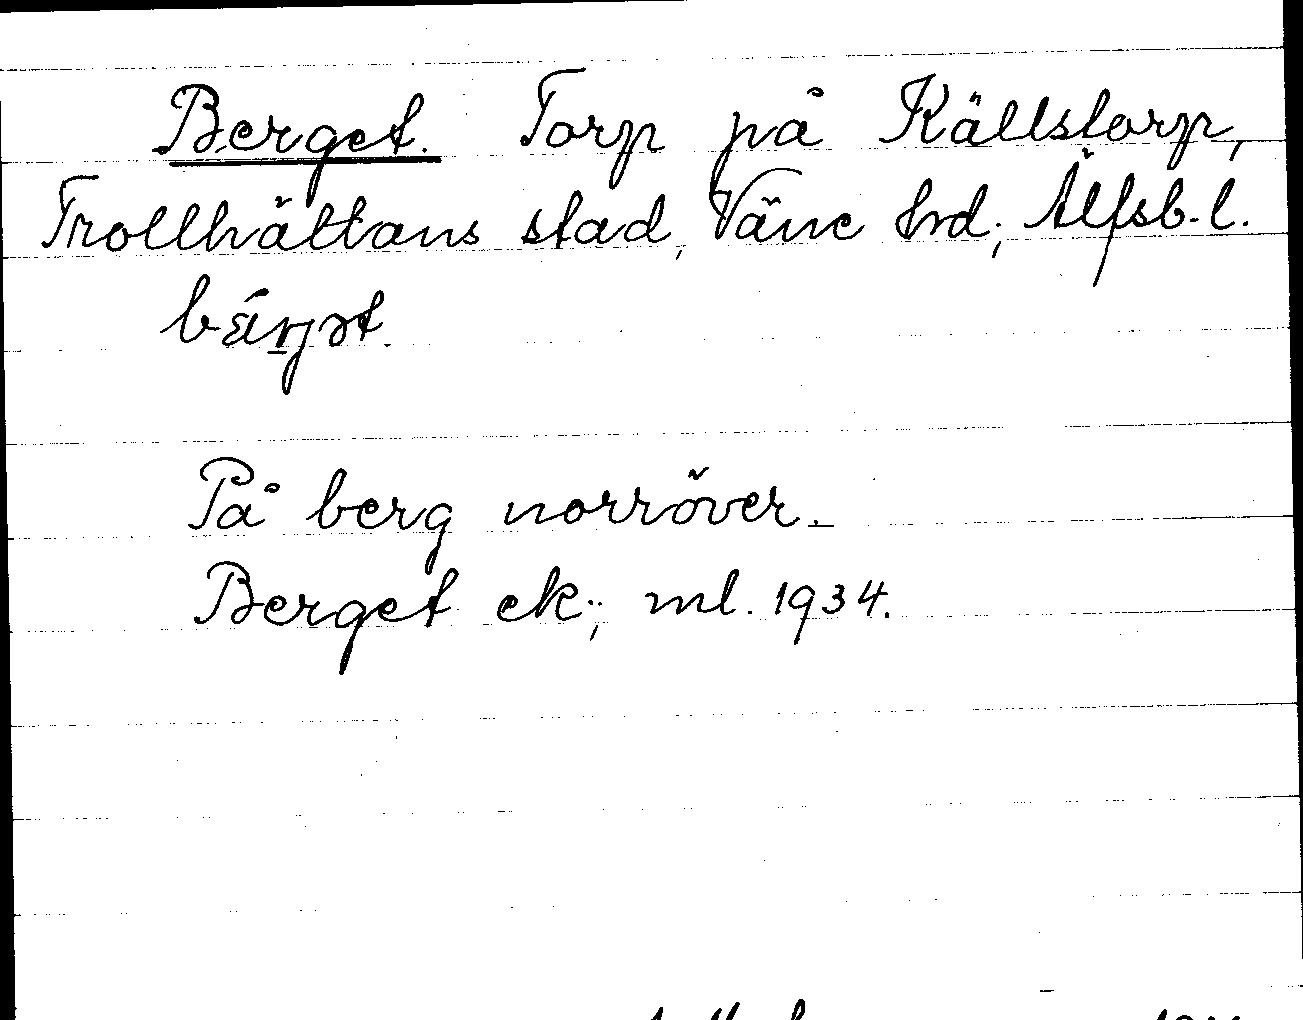 Berget. Torp på Källstorp,
Trollhättans stad, Väne hd; Älfsb. l.
På berg norröver.
Berget ek.; ml. 1934.